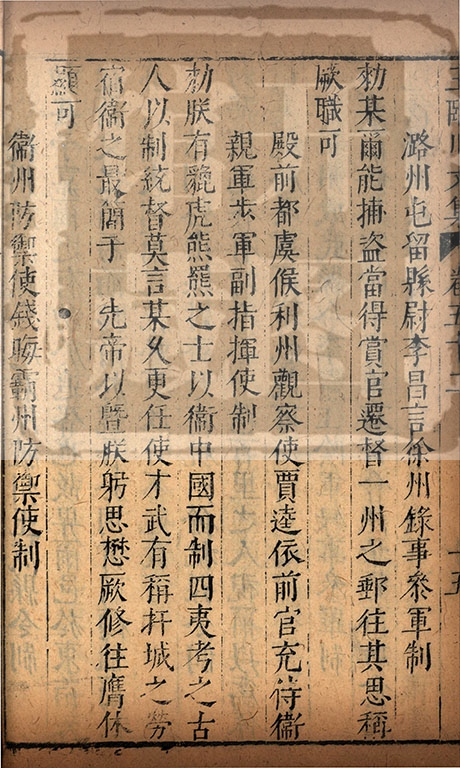 王臨川文集 卷五十二 十五
潞州屯留縣尉李昌言徐州錄事參軍制
勑某爾能捕盜當得賞官遷督一州之郵往其思稱
厥職可
殿前都虞候利州觀察使賈逵依前官充侍衞
親軍步軍副指揮使制
勑朕有貔虎熊羆之士以衞中國而制四夷考之古
人以制統督莫言某久更任使才武有稱扞城之勞
宿衞之最簡于 先帝以曁朕躬思懋厥修往膺休
顯可
衞州防禦使錢晦霸州防禦使制